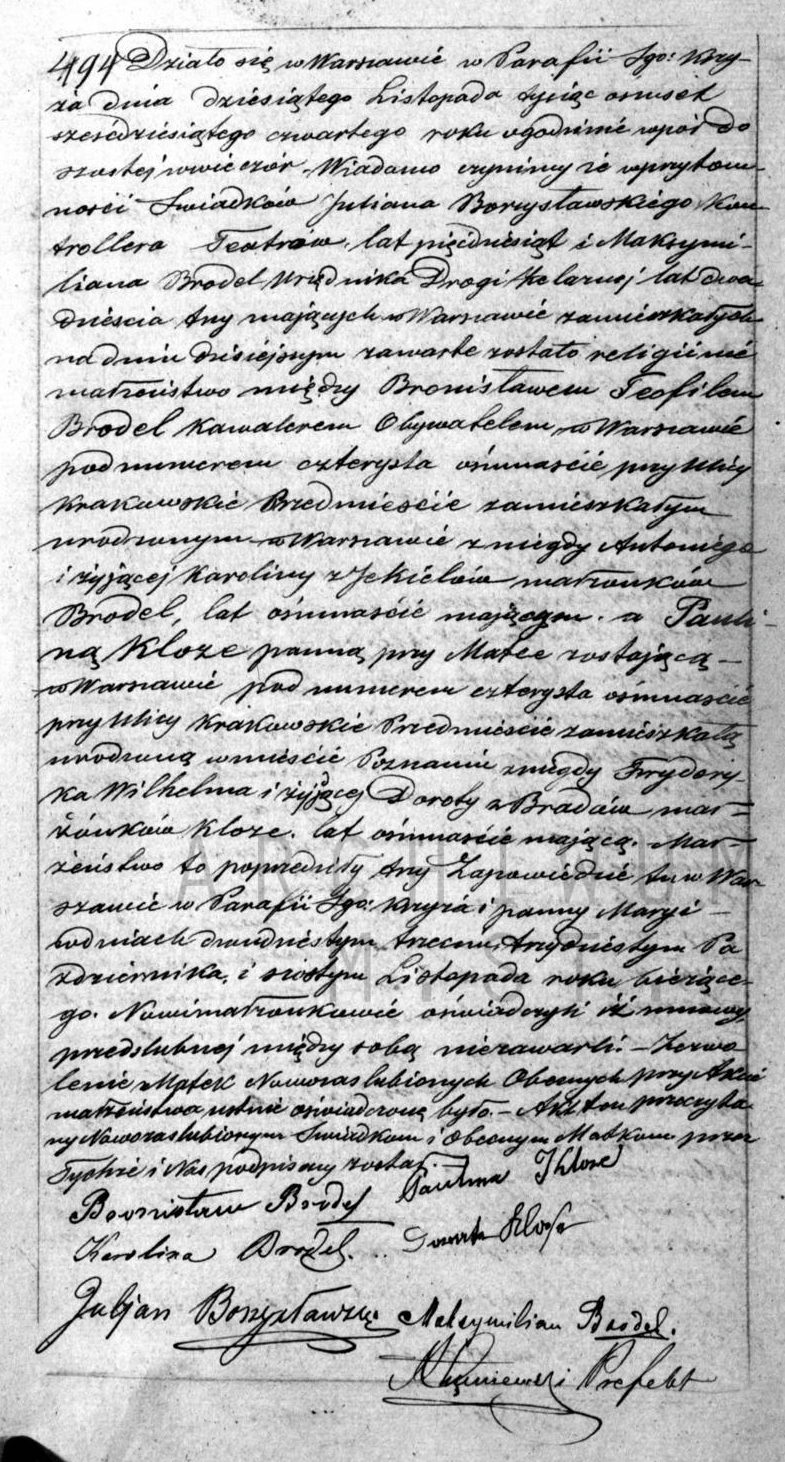 494 Działo się w Warszawie w Parafii Sgo: Krzy-
ża dnia dziesiątego Listopada tysiąc osmset
sześćdziesiątego czwartego roku o godzinie wpół do
szostej wwieczór. Wiadomo czynimy że wprzytom-
ności Swiadków Juliana Borzysławskiego Kon-
trollera Teatrów, lat pięćdziesiąt i Maksymi-
liana Brodel Urzędnika Drogi Żelaznej lat dwa-
dzieścia trzy mających w Warszawie zamieszkałych
na dniu dzisiejszym zawarte zostało religijne
małżeństwo między Bronisławem Teofilem
Brodel Kawalerem Obywatelem w Warszawie
pod numerem czterysta ośmnaście przy Ulicy
Krakowskie Przedmieście zamieszkałym
urodzonym w Warszawie z niegdy Antoniego
i żyjącej Karoliny z Jekielów małżonków
Brodel, lat ośmnaście mającym. a Pauli-
ną Kloze panną przy Matce zostającą
w Warszawie pod numerem czterysta ośmnaście
przy Ulicy Krakowskie Przedmieście zamieszkałą
urodzoną w mieście Poznaniu z niegdy Frydery-
ka Wilhelma i żyjącej Doroty z Bradów mał-
żonków Kloze. lat ośmnaście mającą. Mał-
żeństwo to poprzedziły trzy Zapowiedzie tu w War-
szawie w Parafii Sgo: Krzyża i panny Maryi
w dniach dwudziestym trzecim, trzydziestym Pa-
ździernika, i szóstym Listopada roku bieżące-
go. Nowimałżonkowie oświadczyli iż umowy
przedślubnej między sobą niezawarli. – Zezwo-
lenie Matek Nowozaslubionych Obecnych przy Akcie
małżeństwa ustnie oświadczone było. – Akt ten przeczyta-
ny Nowozaslubionym Swiadkom i Obecnym Matkom przez
Tychże i Nas podpisany został.
Bronisław Brodel Paulina Kloze
Karolina Brodel. Dorota Klose
Juljan Borzysławski Maksymilian Brodel.
Prefekt
ARCHIWUM